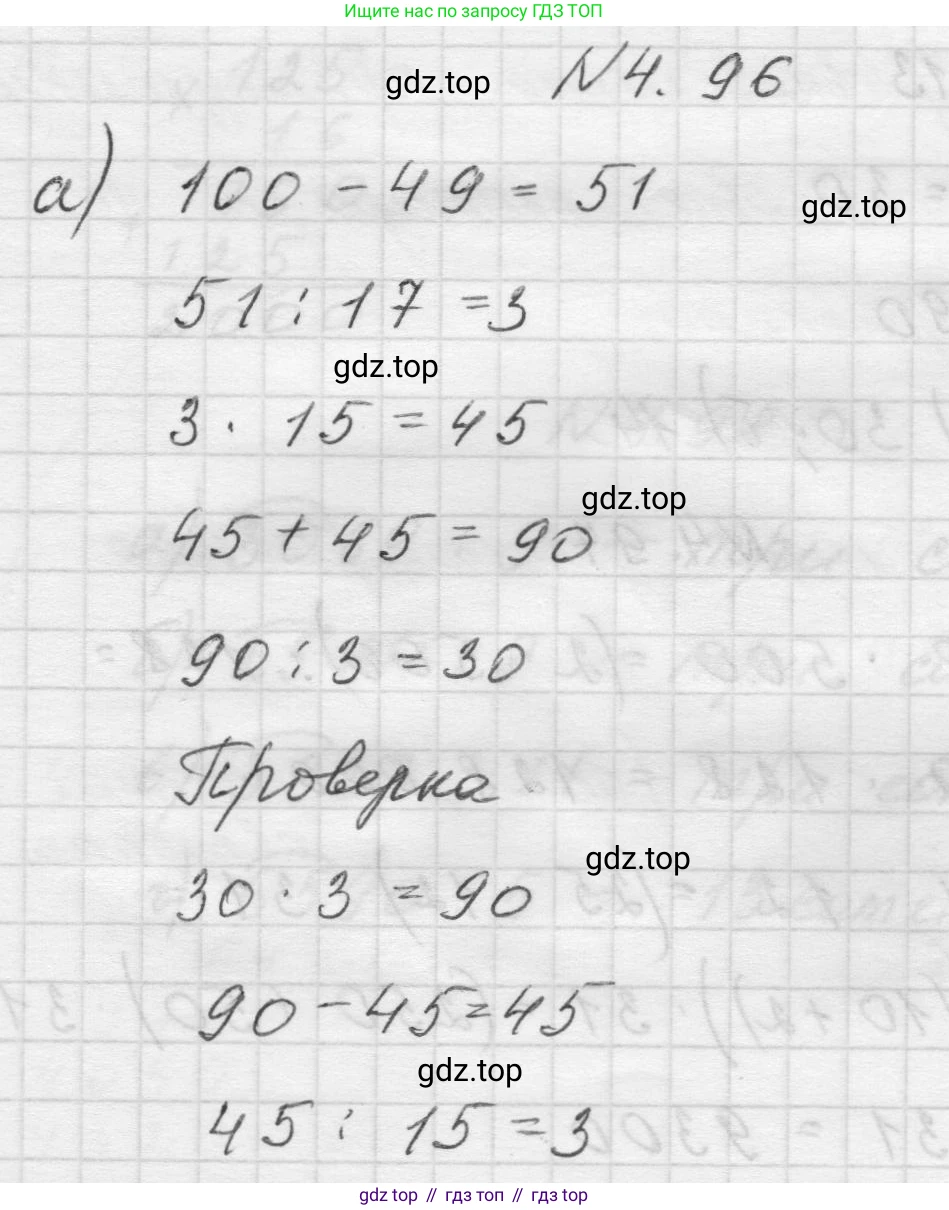 Ищите нас по запросу ГДЗ ТОП
gdz.top №4.96
а) 100 - 49 = 51
gdz.top
51 : 17 = 3
gdz.top
3 · 15 = 45
gdz.top
45 + 45 = 90
90 : 3 = 30
Проверка
gdz.top
30 · 3 = 90
90 - 45 = 45
gdz.top
45 : 15 = 3
gdz top // гдз топ // гдз top